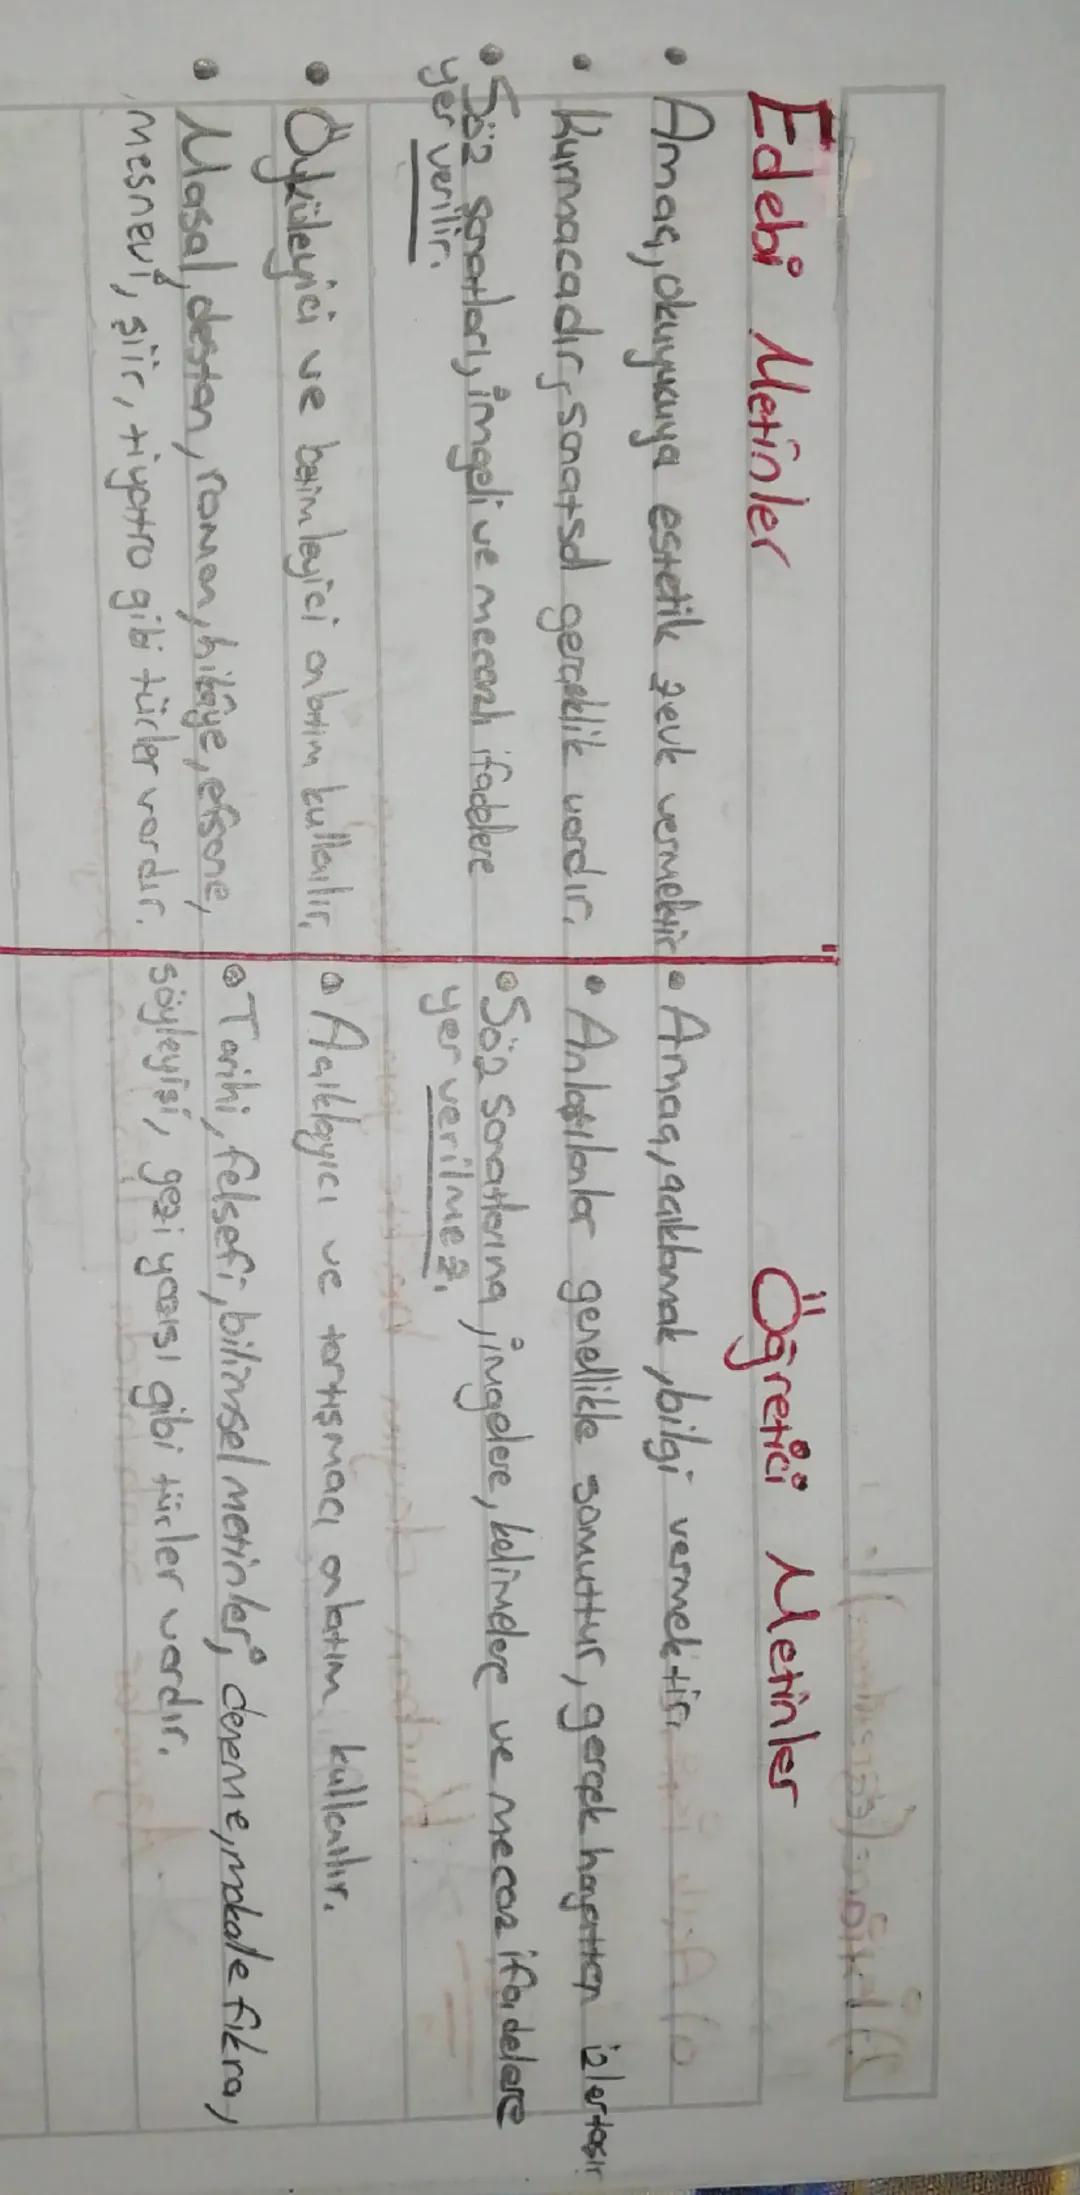 Edebi Metinler
• Amaç, okuyucuya estetik zevk vermektir
• Kurmacadır, sanatsal gerçeklik vardır.
• Söz sanatları, imgeli ve mecazlı ifadelere
yer verilir.
• Öyküleyici ve betimleyici anlatım kullanılır.
• Masal, destan, roman, hikâye, efsane,
mesnevi, şiir, tiyatro gibi türler vardır.
Öğretici Metinler
• Amaç, açıklamak, bilgi vermektir.
• Anlatılanlar genellikle somuttur, gerçek hayattan izler taşır
• Söz sanatlarına, imgelere, kelimelere ve mecaz ifadelere
yer verilmez.
• Açıklayıcı ve tartışmacı anlatım kullanılır.
• Tarihi, felsefi, bilimsel metinler, deneme, makale fıkra,
söyleyişi, gezi yazısı gibi türler vardır.